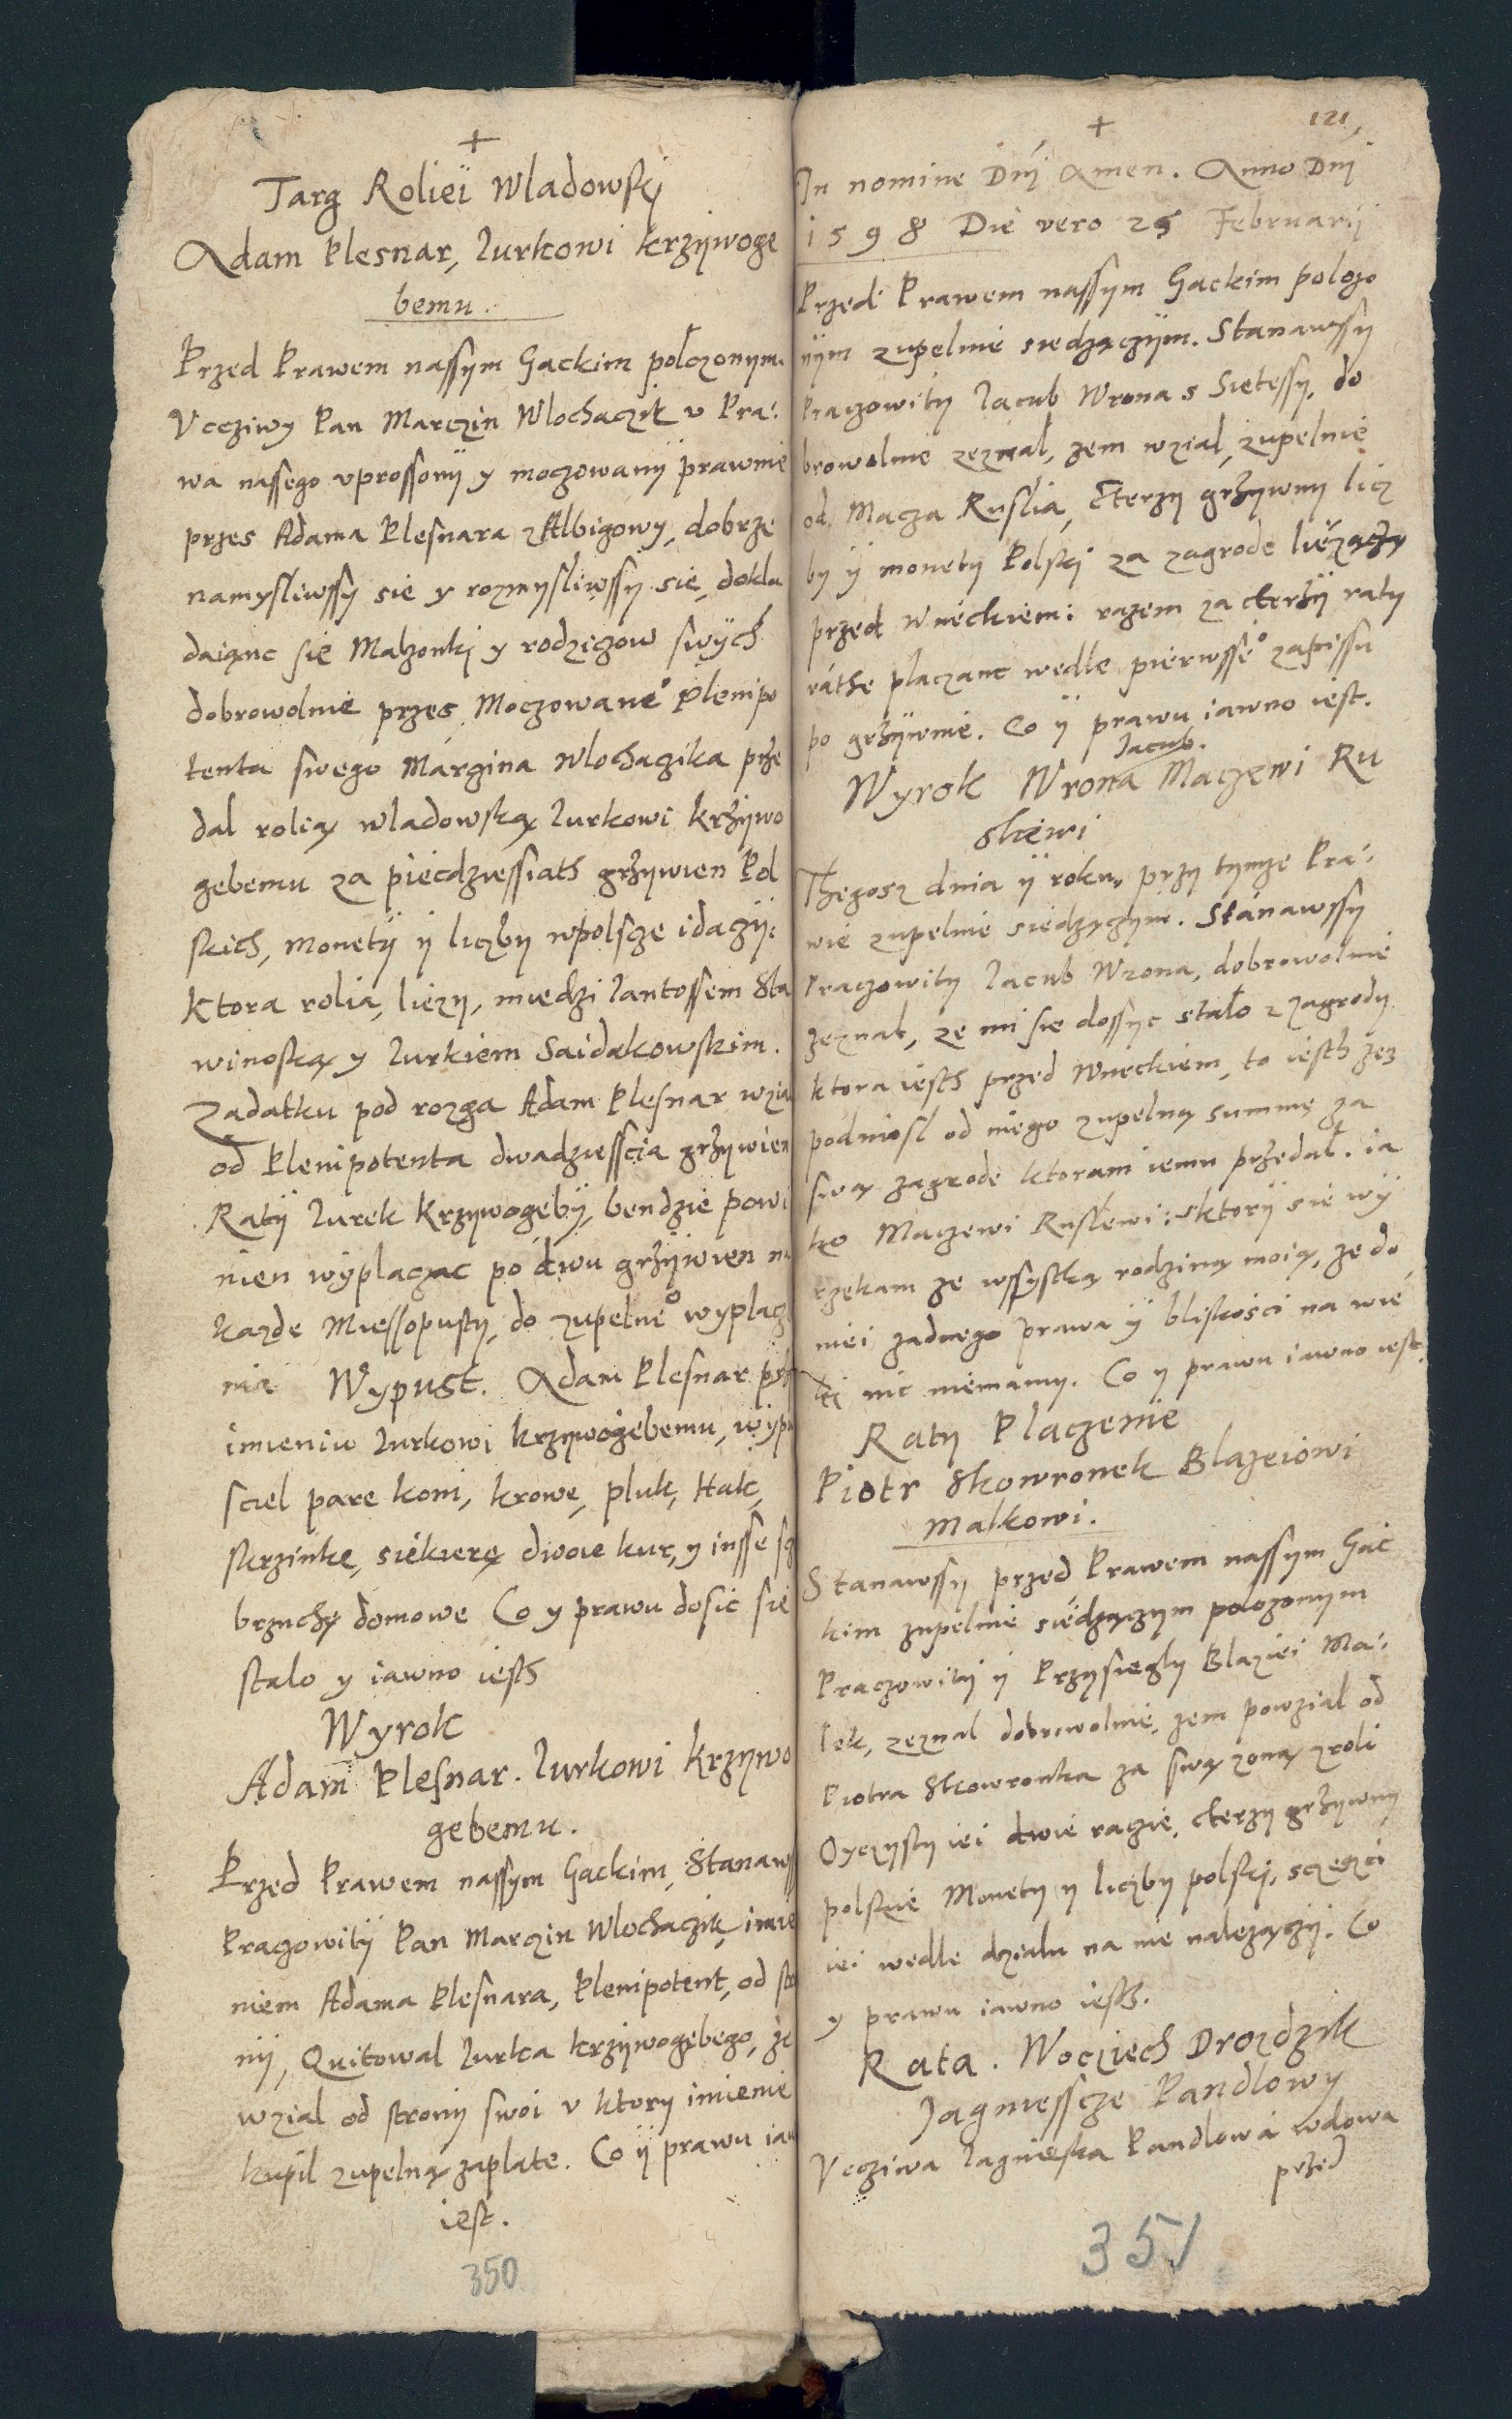 +
Targ Roliei Wladowskj
Adam Plesnar, Iurkowi krzijwoge
bemu.
Przed Prawem nassym Gackim polozonym.
Uccziwy Pan Marczin Wlochaczik v Pra:
wa nassego vprossonij y moczowanij prawnie
przes Adama Plesnara z Albigowy, dobrze
namyslιwssy sie y rozmysliwssÿ sie, dokla
daiąnc sie Malzonkj y rodziczow swÿch
dobrowolnie przes Moczowane° Plenipo
tenta swego Marzina Wlochazika prze
dal rolią wladowską Iurkowi krziywo
gebemu za piecdziessiath grzywien Pol
skich, monetÿ ij liczby wpolscze idaczÿ:
Ktora rolia, liezy, miedzi Iantossem Sla
winoską y Iurkiem Saidakowskim.
Zadatku pod rozga Adam Plesnar wzia
od Plenipotenta dwadziesscia grzywien
Ratÿ Iurek Krzywogebÿ, bendzie powi
nien wÿplaczac po dwu grzÿwien na
kazde Miessopusty, do zupelne° wyplacz
nia Wypust. Adam Plesnar prz
imieniu Iurkowi krzywogebemu, wÿpu
sciel pare koni, krowe, pluk, Hak,
skrzinke, siekierę dwoie kur, y insse sp
brzuchÿ domowe Co y prawu dosic sie
stalo y iawno iesth
Wyrok
Adam Plesnar. Iurkowi Krzywo
gebemu.
Przed Prawem nassym Gackim, Stanaws
Praczowitÿ Pan Marczin Wlochaczik imie
niem Adama Plesnara, Plenipotent, od stro
nij, Quitowal Iurka krzijwogebego, ze
wzial od strony swoi v ktory imienie
kupil zupelną zaplate. Co ÿ prawu iaw
iest.
350
+
121,
In nomine Dni Amen. Anno Dni
1598 Die vero 25 Februarij
Przed Prawem nassym Gackim polozo
nÿm zupelnie siedzączÿm. Stanawssy
Praczowitÿ Iacub Wrona s Sietessy, do
browolnie zeznal, zem wzial, zupelnie
od Macza Ruslia, Cterzy grzywny licz
by ÿ monetÿ Polskj za zagrode liezączy
przed Wneckiem: razem za cterzÿ raty
rathe placzanc wedle pierwsse° zapissu
po grzÿwnie. Co ÿ prawu iawno iest.
Iacub.
Wyrok Wrona Maczewi Ru
slewi
Thegosz dnia ÿ roku, przy tymze Pra:
wie zupelnie siedzączym. Stanawssy
Praczowity Iacub Wrona, dobrowolnie
zeznal, ze mi sie dossyc stalo z zagrody
ktora iesth przed Wneckiem, to iesth zem
podniosl od niego zupelną summę za
swą zagrode ktoram iemu przedal. ia
ko Maczewi Ruslewi: sktorÿ sie wÿ
rzekam ze wssystką rodziną moią, ze do
niei zadnego prawa ÿ bliskosci na wie
ki nic niemamy. Co y prawu iawno iest.
Raty Placzenie
Piotr Skowronek Blazeiowi
Malkowi.
Stanawssy przed Prawem nassym Gac
kim zupelnie siedzączym polozonym
Praczowity ÿ Przysiegly Blaziei Ma:
lek, zeznal dobrowolnie, zem powzial od
Piotra Skowronka za swą zoną zroli
Oyczysty iei dwie racie, cterzy grzywny
polskie Monety y liczby polskj, sczesci
iei wedle dzialu na nie nalezączÿ. Co
y prawu iawno iesth.
Rata. Wocziech Drozdzik
Iagniessce Pandlowy
Ucziwa Iagnieska Pandlowa wdowa
przed
351